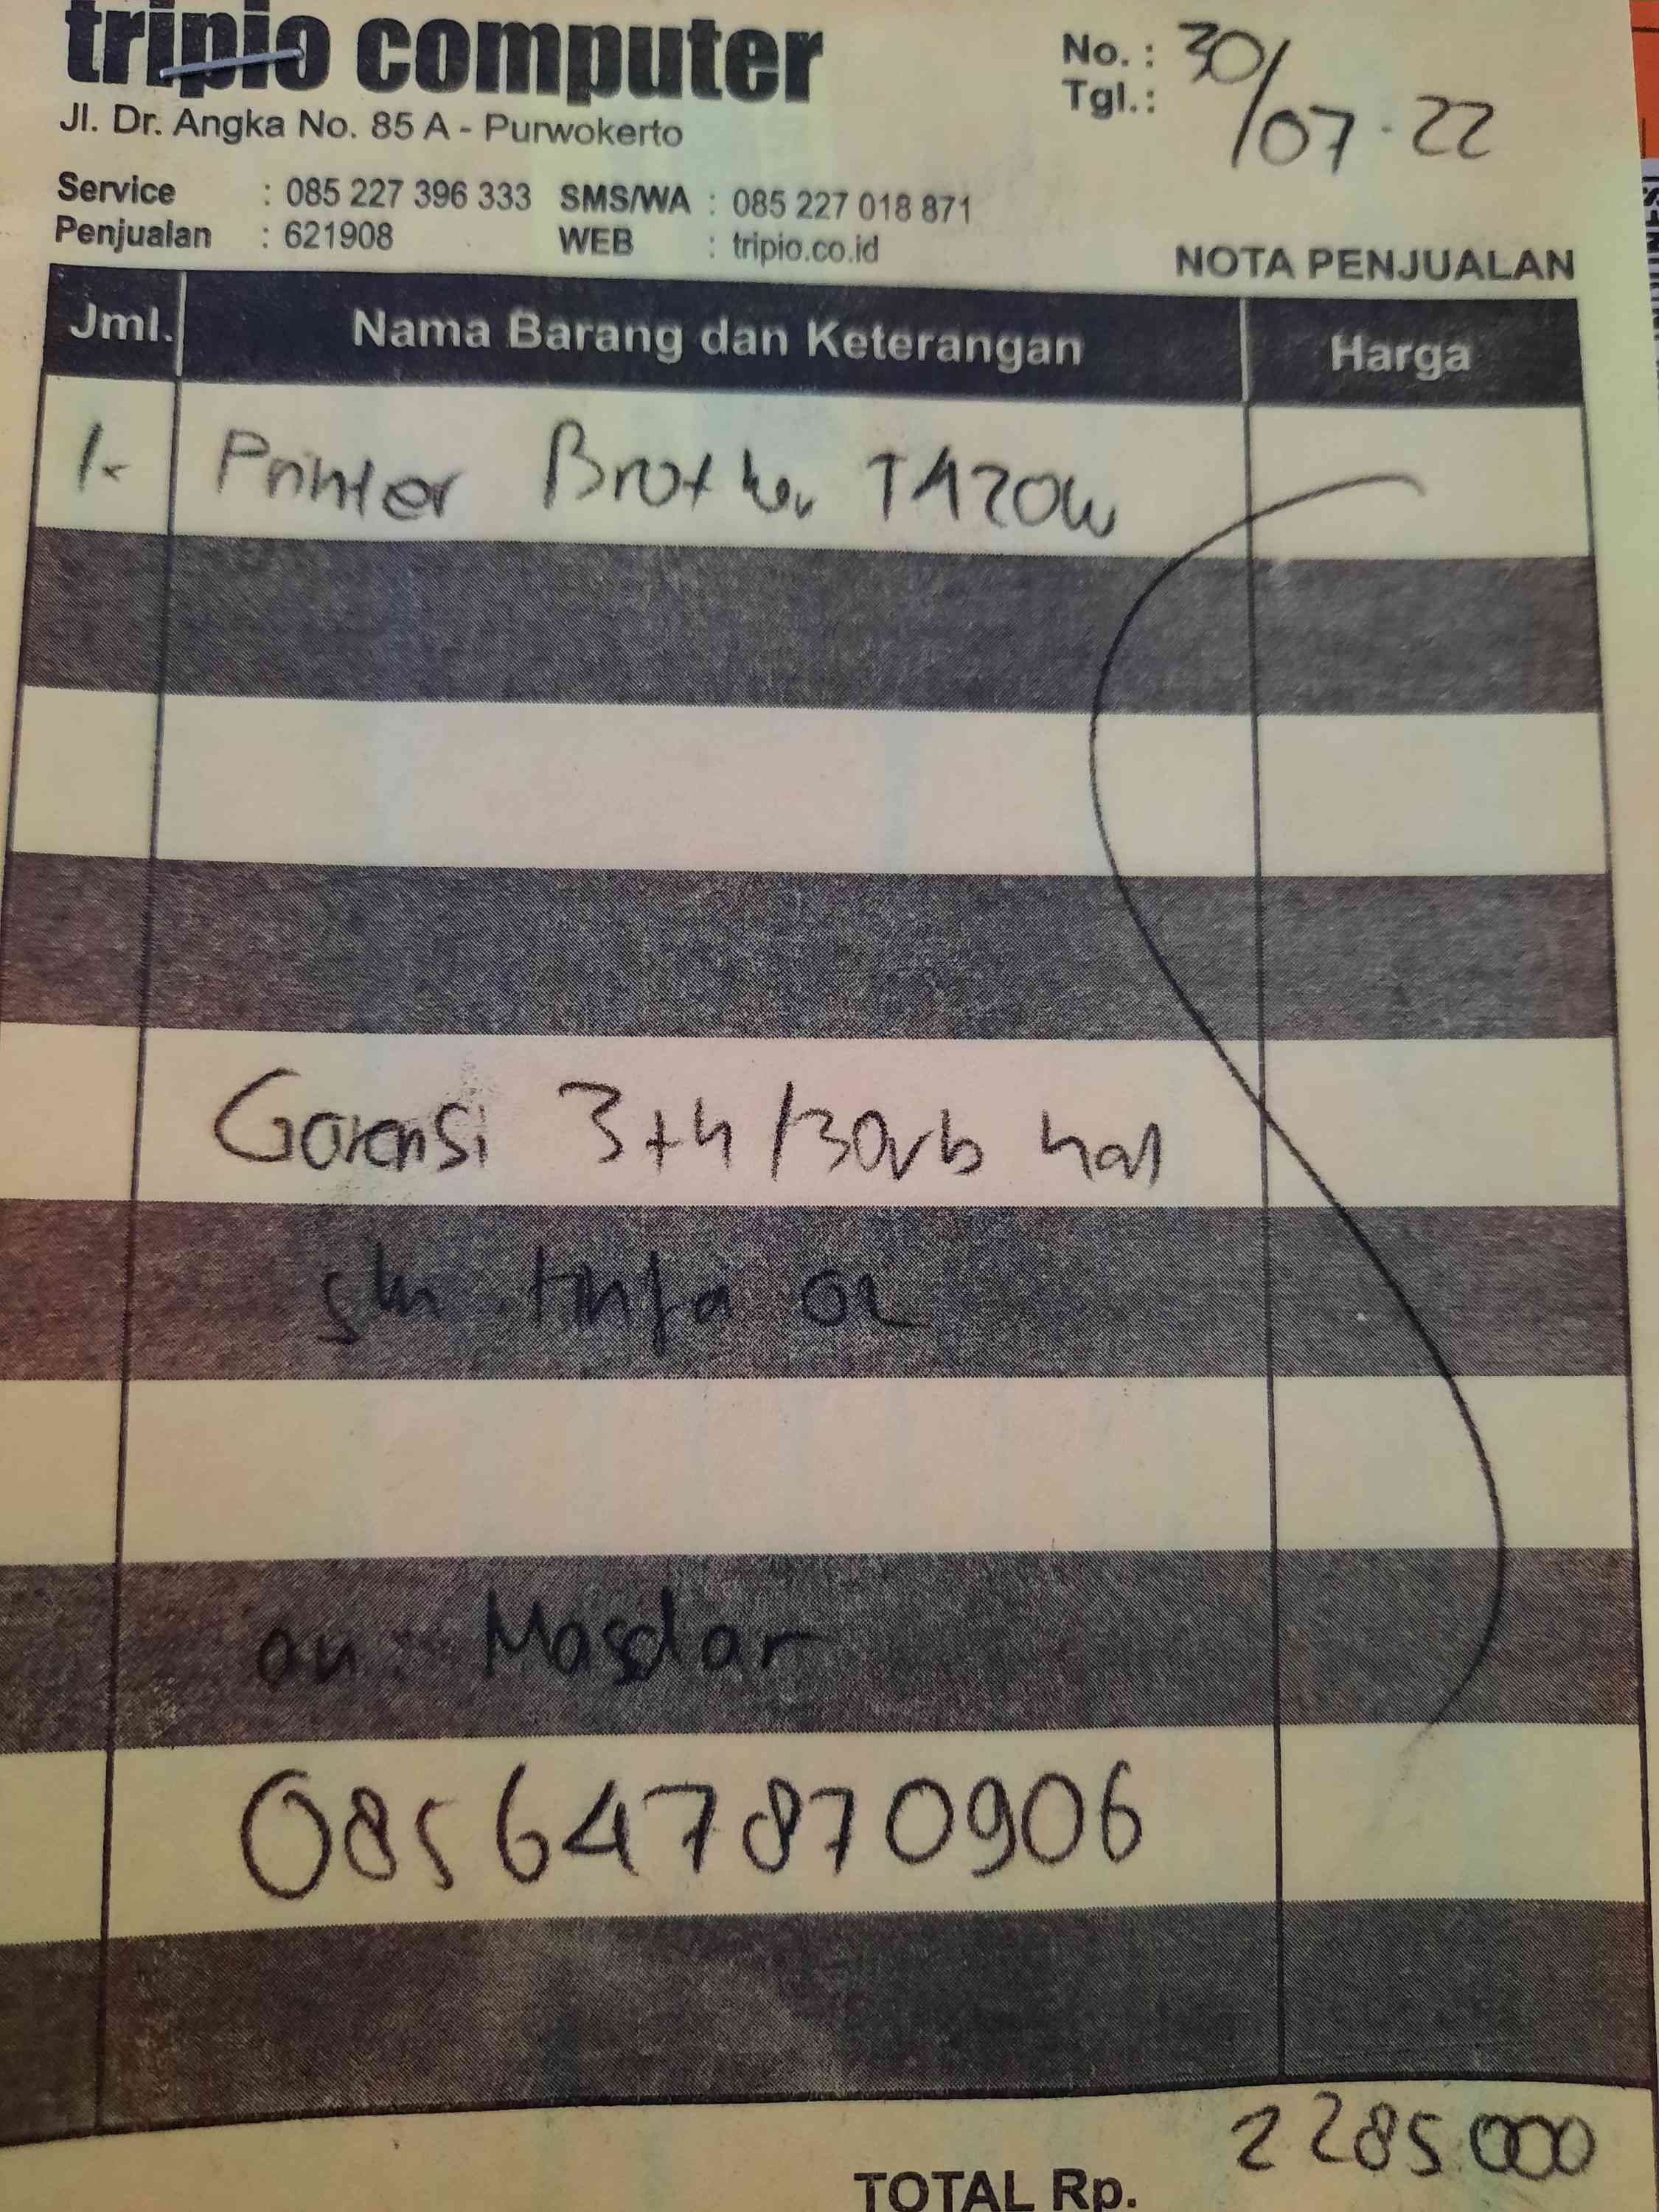 tripio computer
Jl. Dr. Angka No. 85 A - Purwokerto
No. : 30/07-22
Tgl. :
Service : 085 227 396 333 SMS/WA : 085 227 018 871
Penjualan : 621908 WEB : tripio.co.id
NOTA PENJUALAN
Jml. Nama Barang dan Keterangan Harga
1x Printer Brother T420W
Garansi 3th/30rb hal
tinta
an: Masdar
085647870906
2285000
TOTAL Rp.